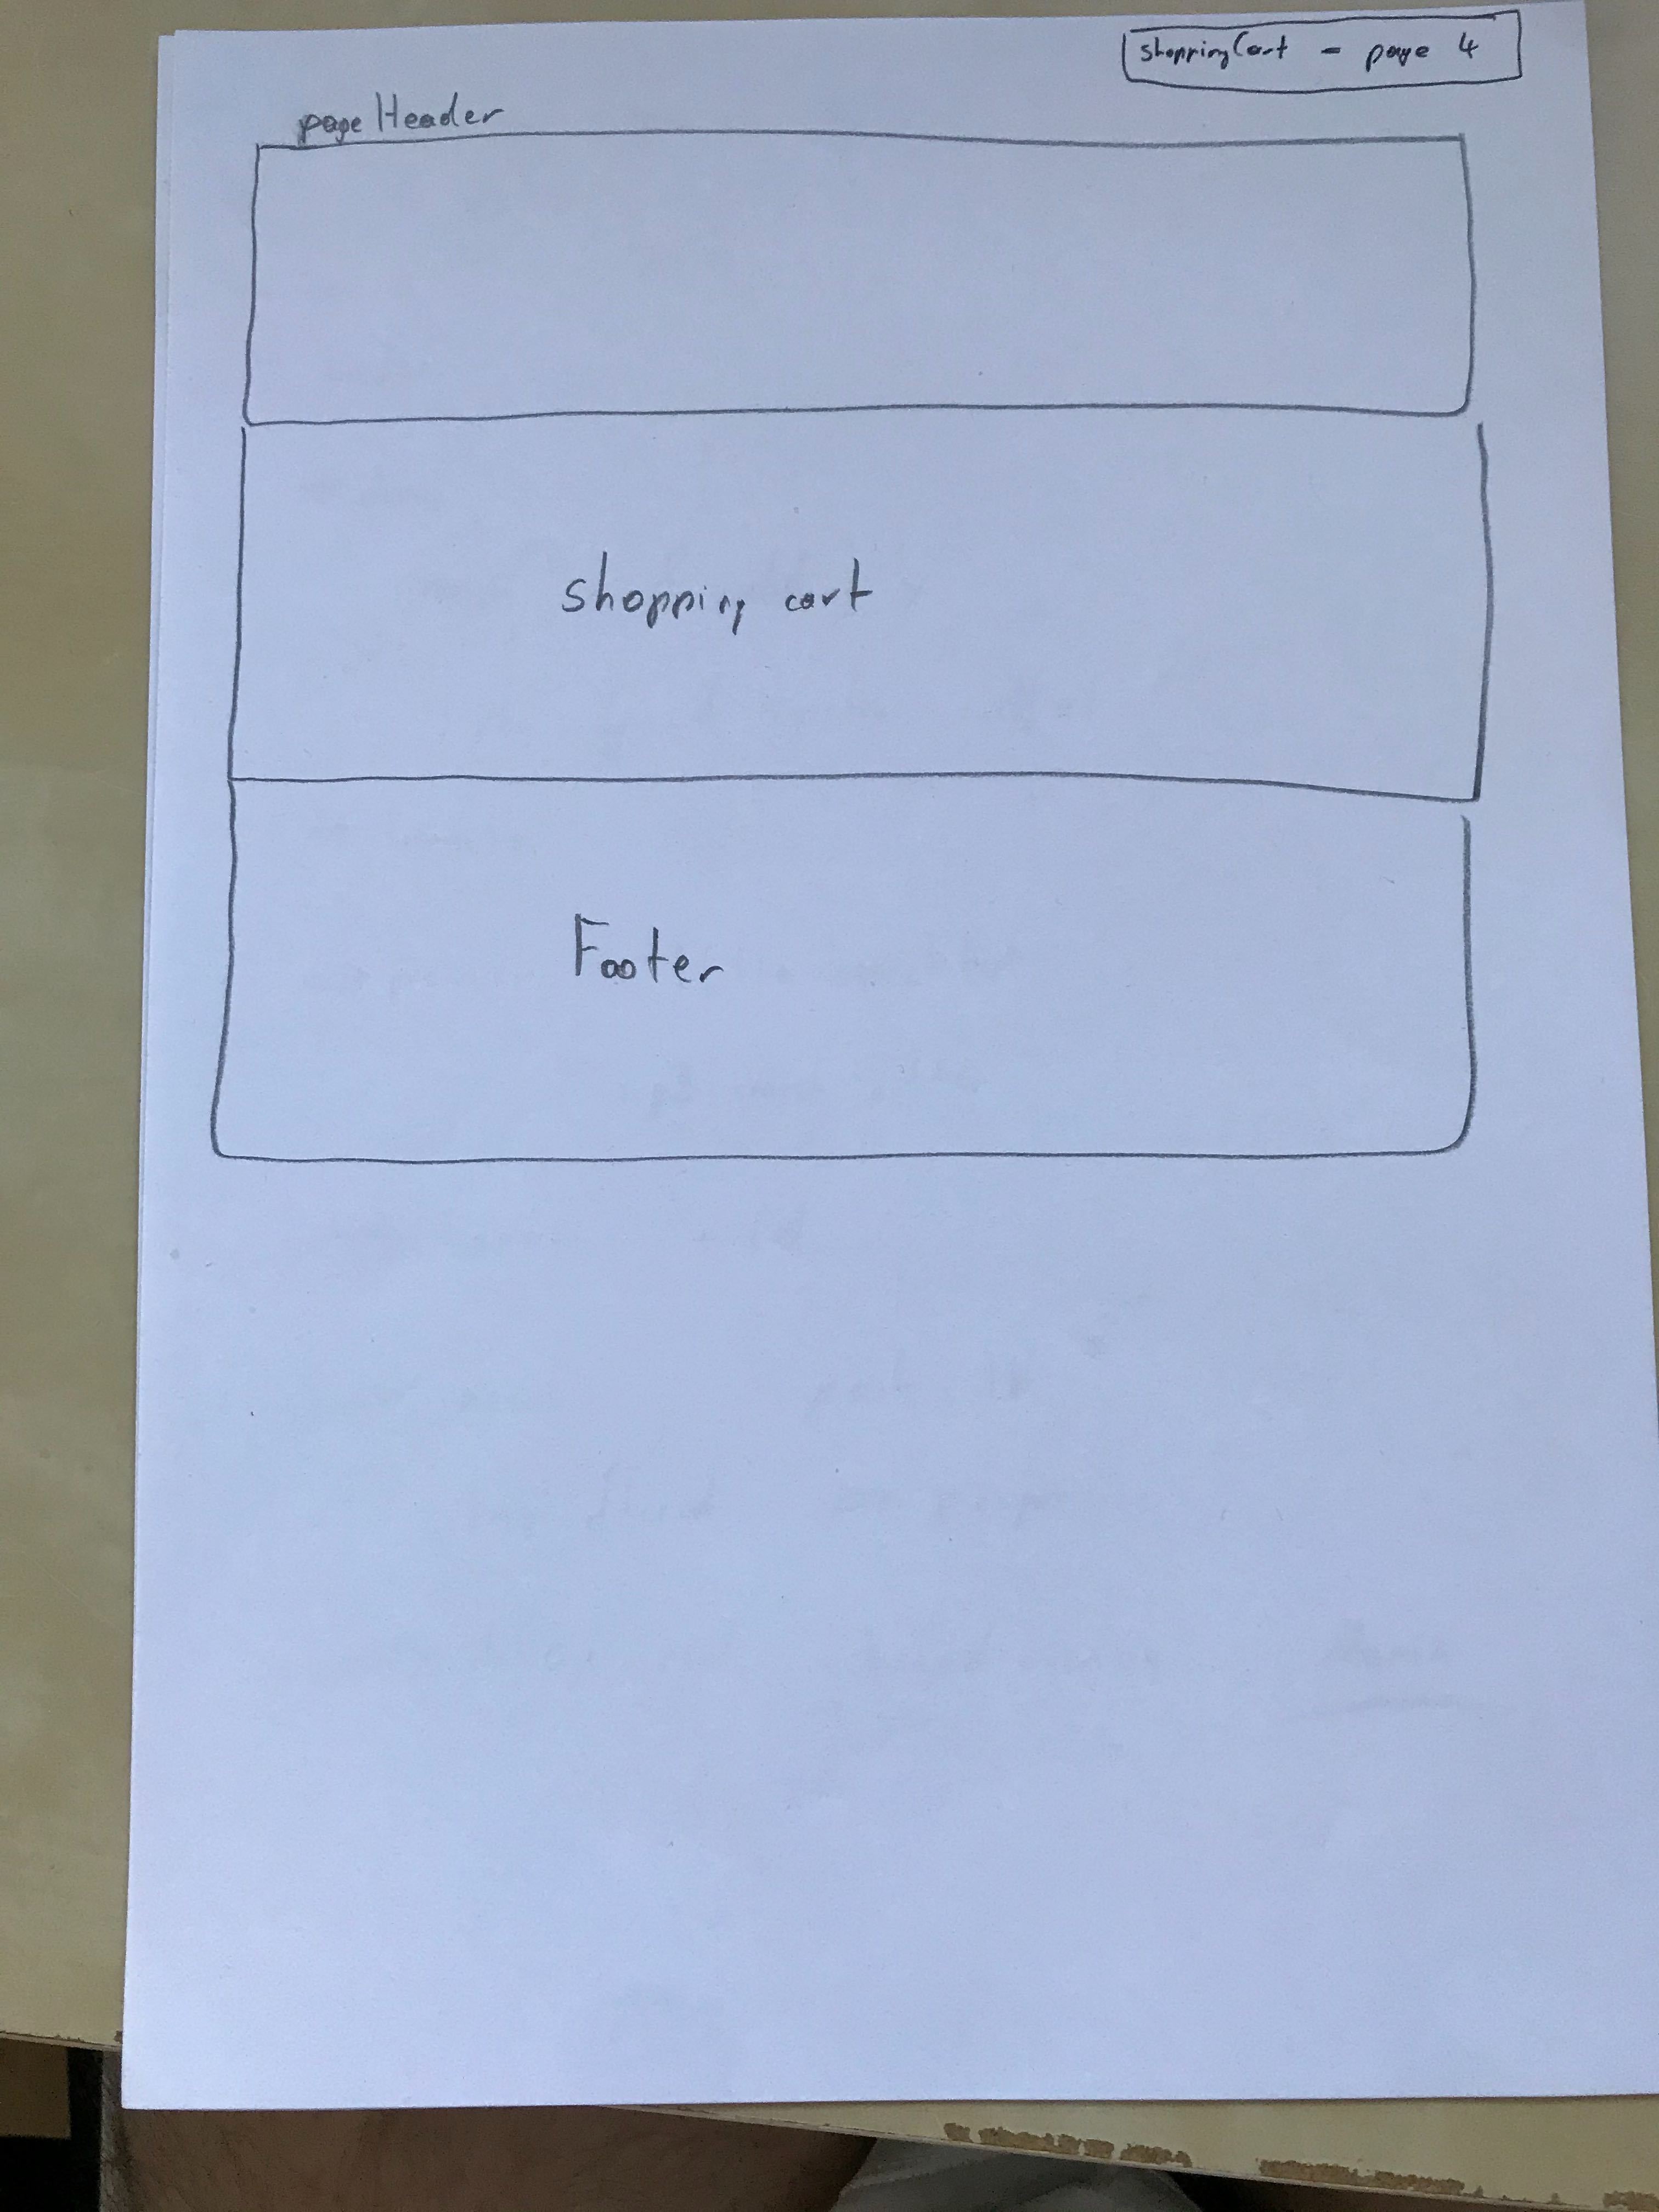 shoppingCart - page 4
pageHeader
shopping cart
Footer